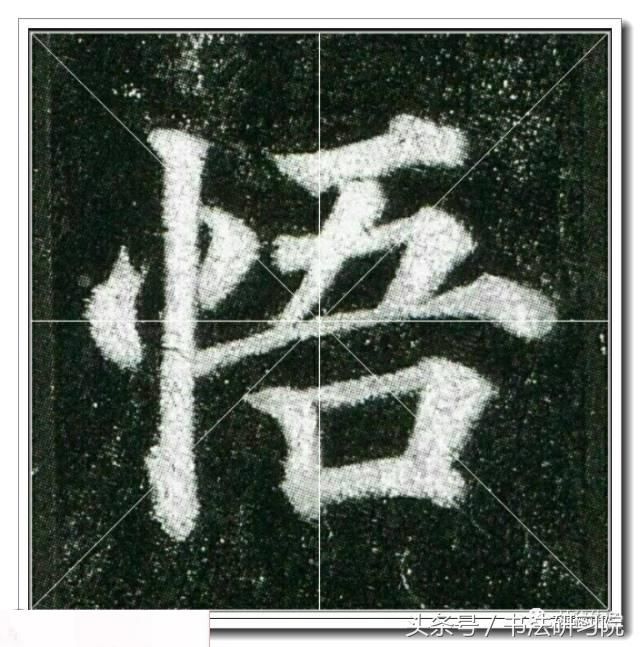 悟
头条号 / 书法研习院